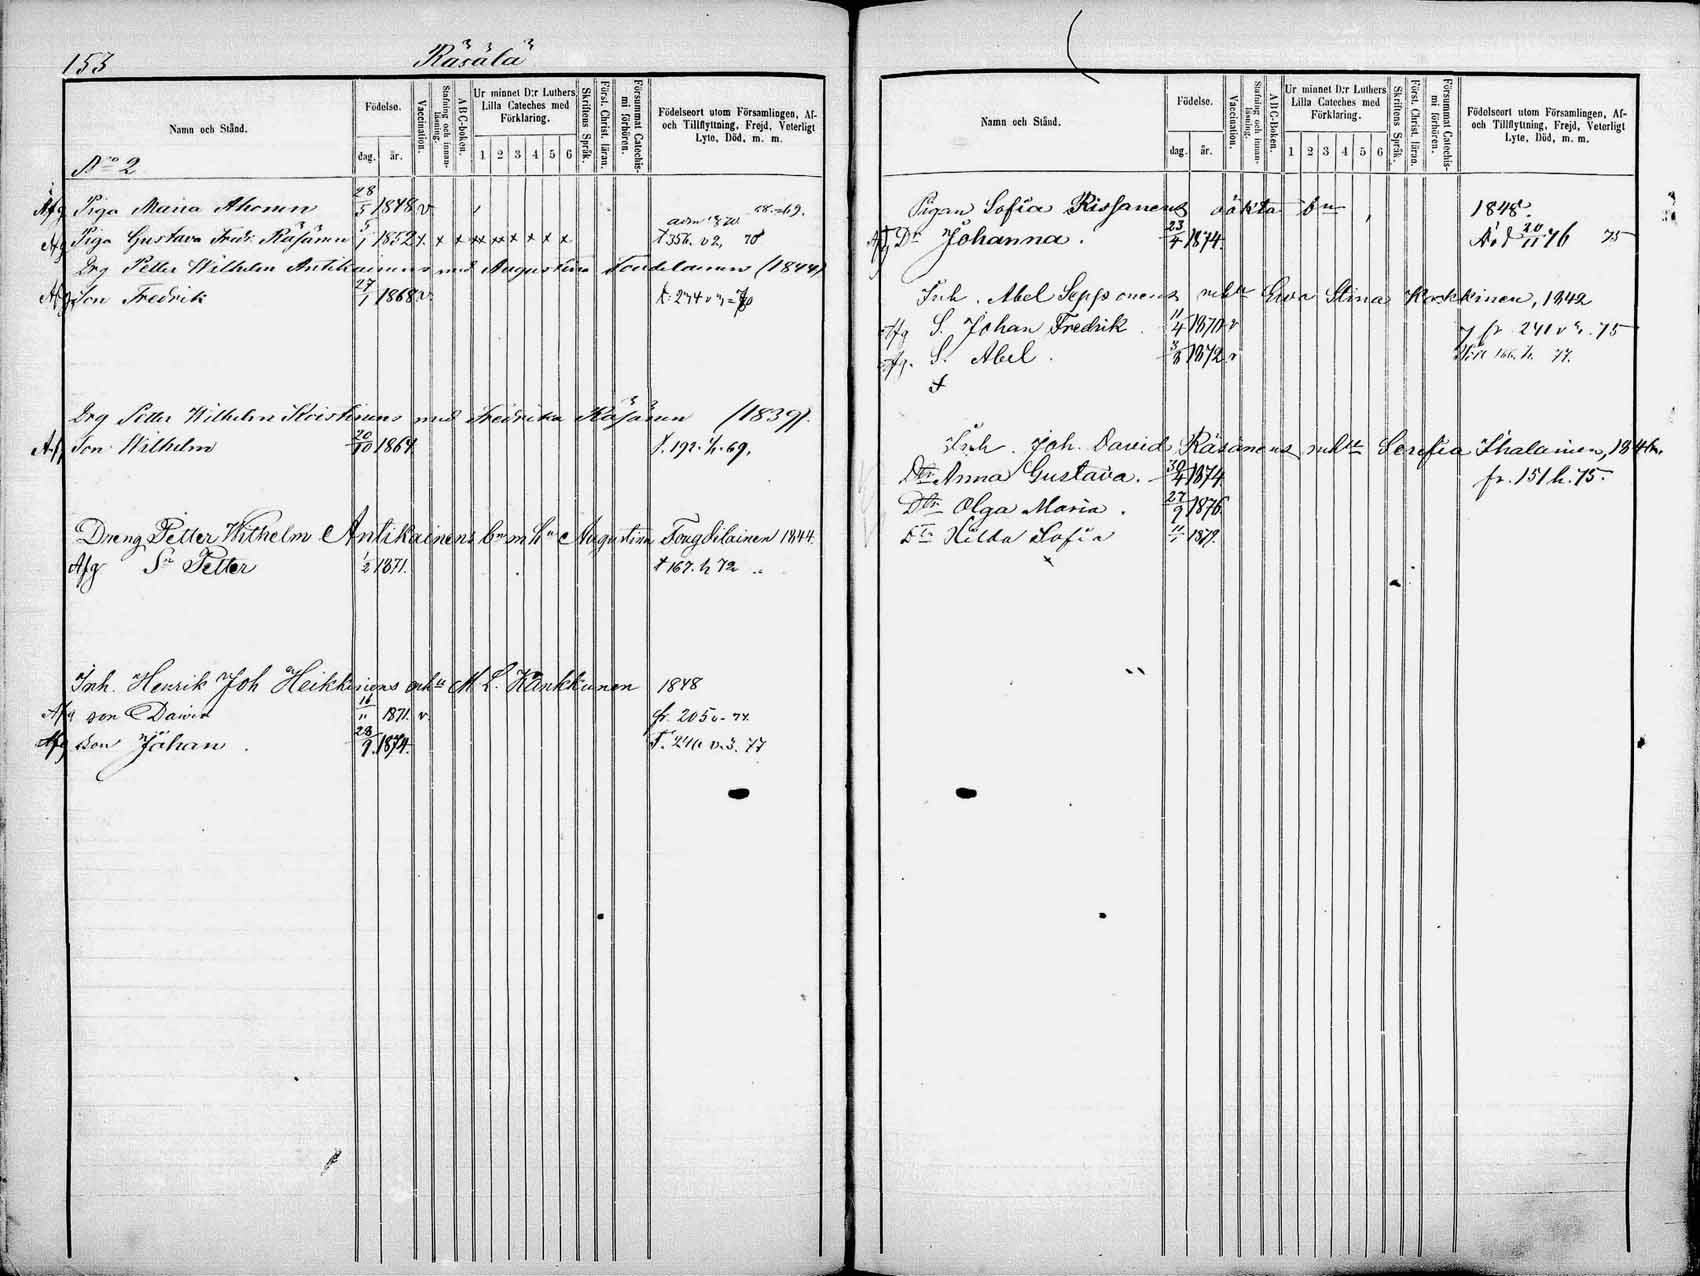 153 Räsälä
Namn och Stånd.
Födelse.
dag. år.
Vaccination.
Stafning och innanläsning.
ABC-boken.
Ur minnet D:r Luthers Lilla Cateches med Förklaring.
1 2 3 4 5 6
Skriftens Språk.
Först. Christ. läran.
Försummat Catechismi förhören.
Födelseort utom Församlingen, Af- och Tillflyttning, Frejd, Veterligt Lyte, Död, m. m.
No 2
Afg Piga Maria Ahonen 28/5 1848 v
Afg Piga Gustava Fredr. Räsänen 5/1 1852 x x x xx x x x x 356. v 2, 70
Drg Petter Wilhelm Antikainens med Augustina (1844)
Afg Son Fredrik 27/1 1868 v
Drg Petter Wilhelm Koistinens med Fredrika Räsänen (1839).
Afg Son Wilhelm 20/10 1864 192. h. 69.
Dreng Petter Wilhelm Antikainens Augustina 1844.
Afg Sn Petter 1/2 1871. 167. h 72
Inh. Henrik Joh Heikkinens M. L. Kankkunen 1848
Afg son David 16/11 1871. v. fr. 205 v. 74.
Afg son Johan 28/9 1874. v. 3. 77
Namn och Stånd.
Födelse.
dag. år.
Vaccination.
Stafning och innanläsning.
ABC-boken.
Ur minnet D:r Luthers Lilla Cateches med Förklaring.
1 2 3 4 5 6
Skriftens Språk.
Först. Christ. läran.
Försummat Catechismi förhören.
Födelseort utom Församlingen, Af- och Tillflyttning, Frejd, Veterligt Lyte, Död, m. m.
Pigan Sofia Rissanens oäkta bn 1848.
Afg Dr Johanna. 23/4 1874. 20/11 76 75
Inh. Abel Sepponens Ewa Stina Koskkinen, 1842
Afg S. Johan Fredrik 11/4 1870 v fr 241 v. 75
Afg. S. Abel. 3/8 1872 v 166. h. 77.
Inh. Joh. David Räsänens Serefia Ihalainen, 184
Dtr Anna Gustava. 30/4 1874. fr. 151 h. 75.
Dtr Olga Maria. 27/9 1876
Dtr Hilda Sofia 11/1 1879.